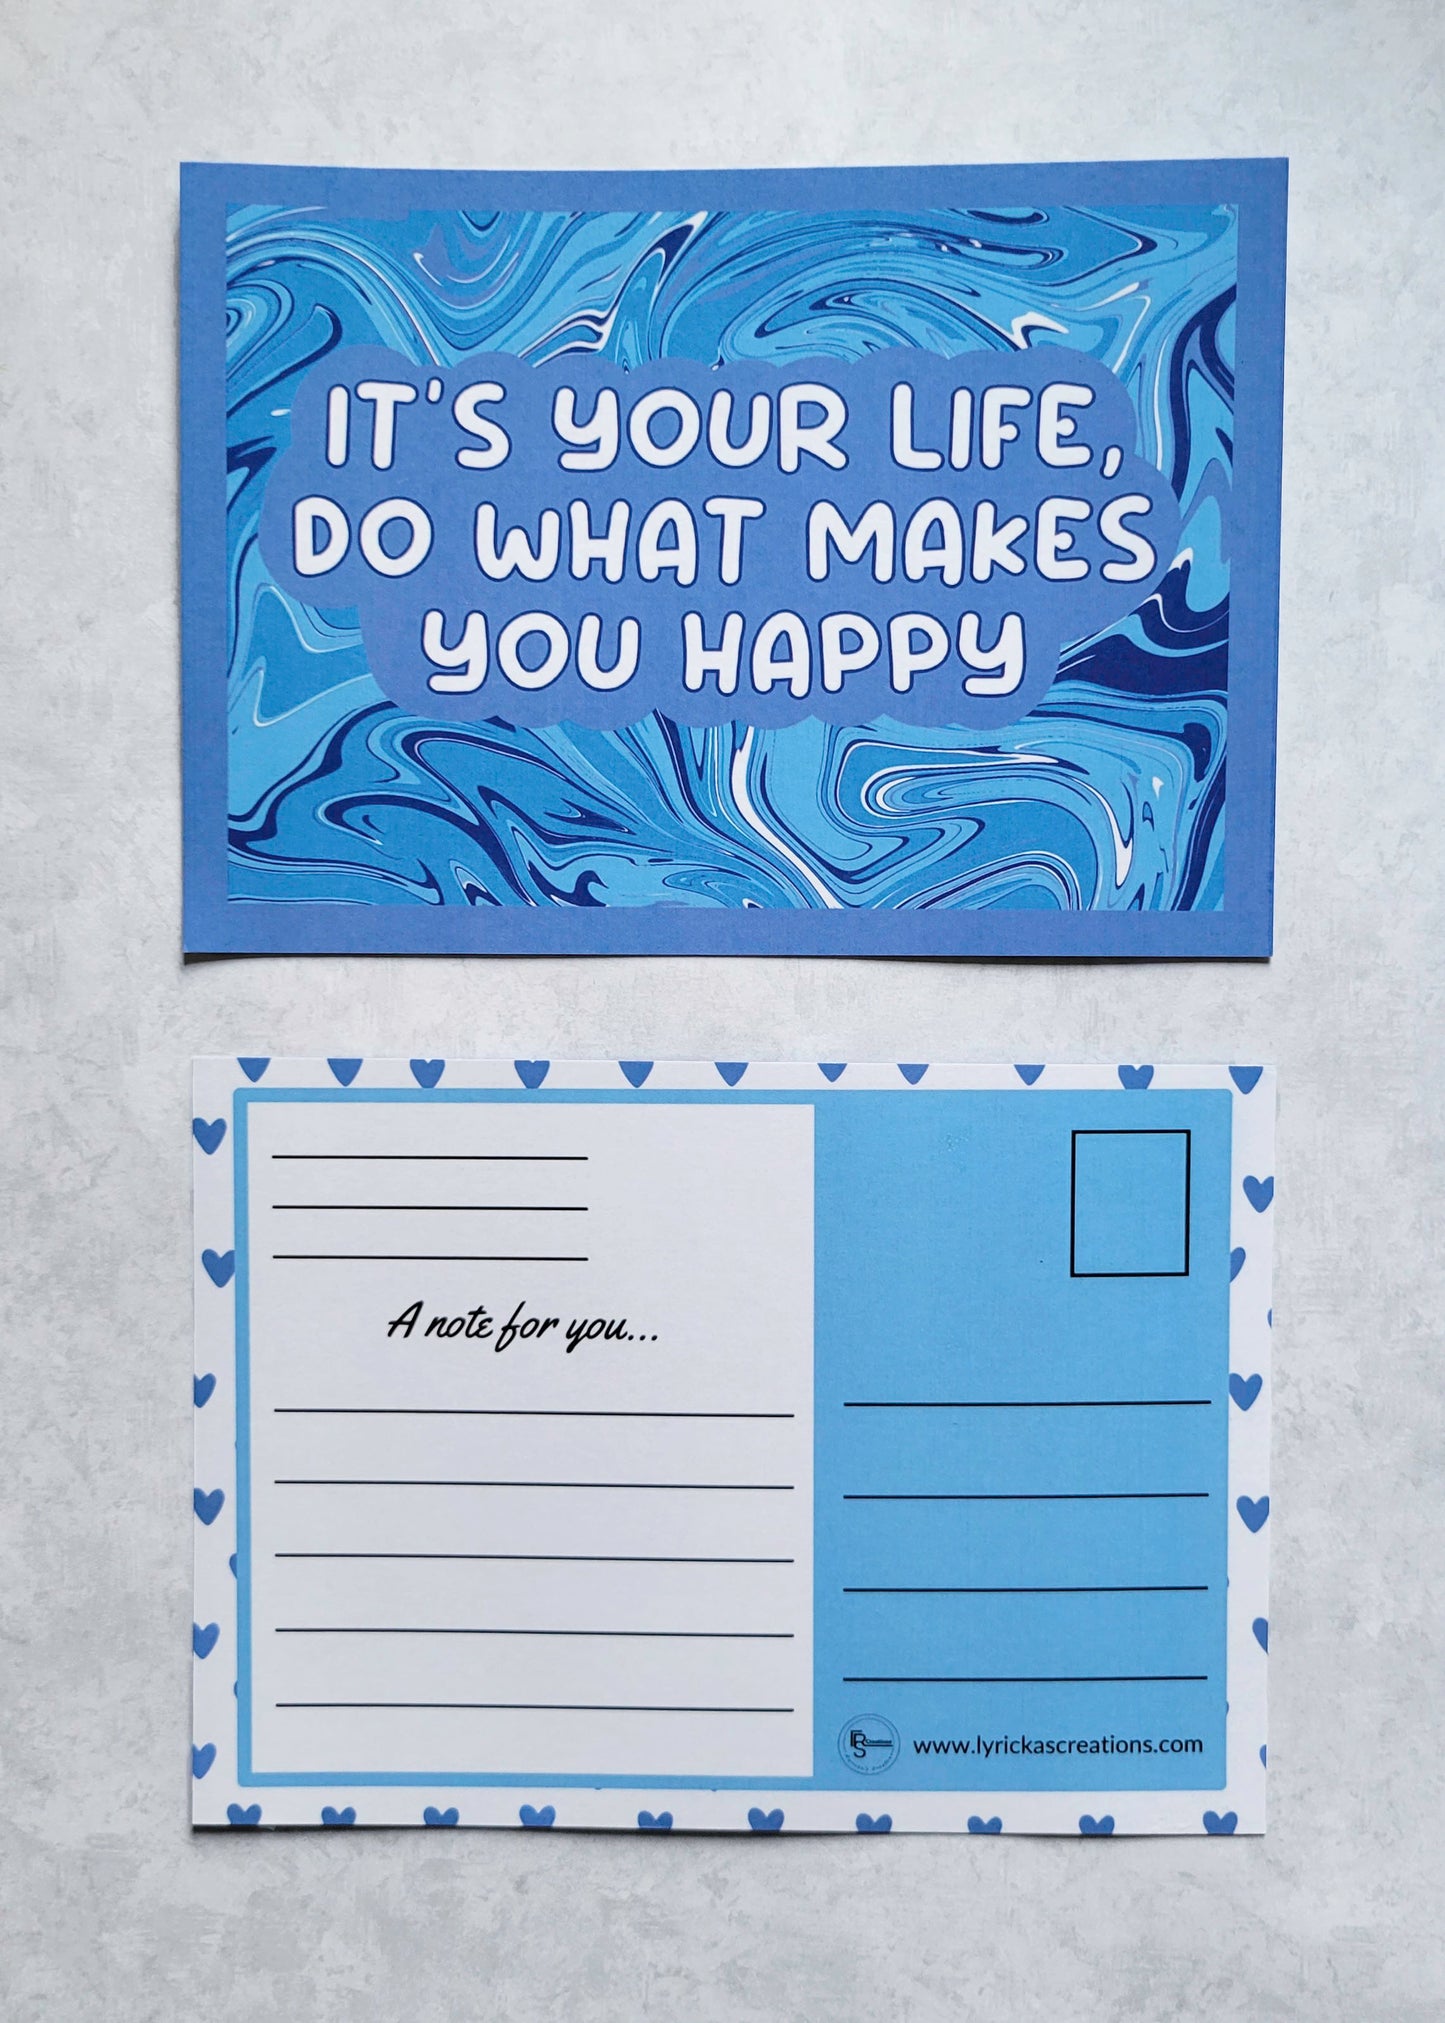 IT'S YOUR LIFE,
DO WHAT MAKES
YOU HAPPY
A note for you...
www.lyrickascreations.com